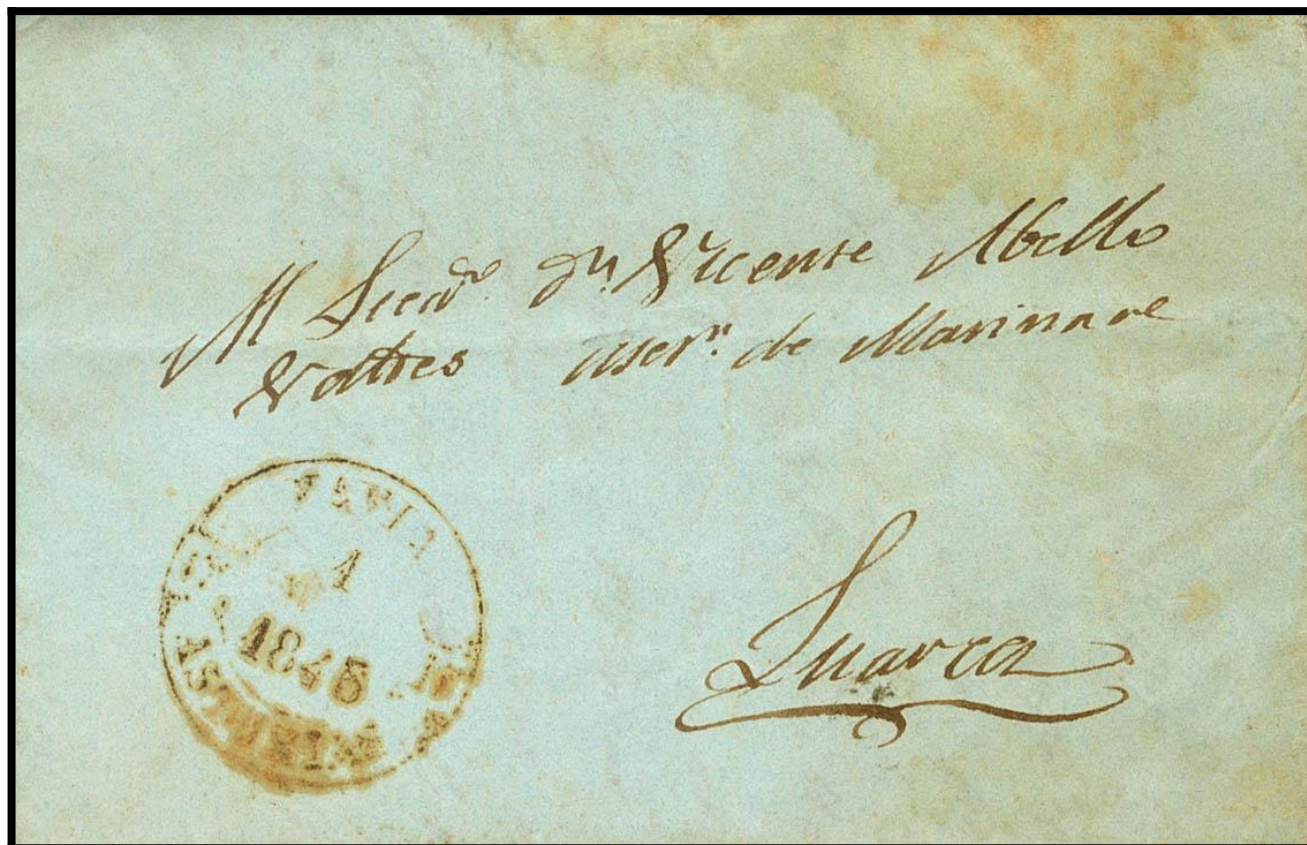 Al Licdo. Dn. Vicente Abello
Valdes asern. de Marina de
Luarca
NAVIA
1
1845
ASTURIAS